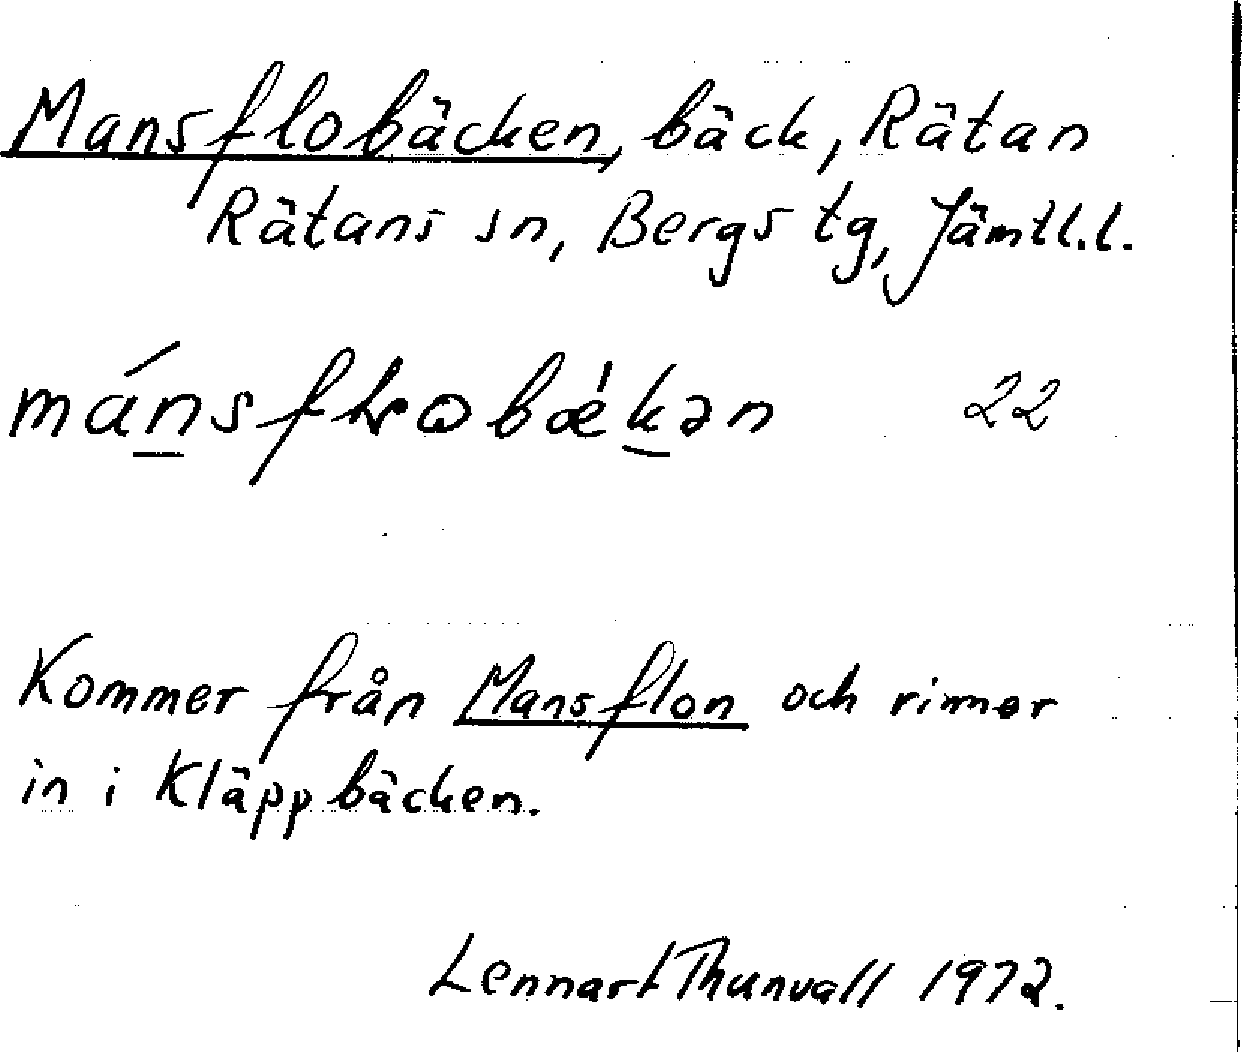 Mansflobäcken, bäck, Rätan
Rätans sn, Bergs tg, Jämtl.l.
22
Kommer från Mansflon och rinner
in i Kläppbäcken.
Lennart Thunvall 1972.